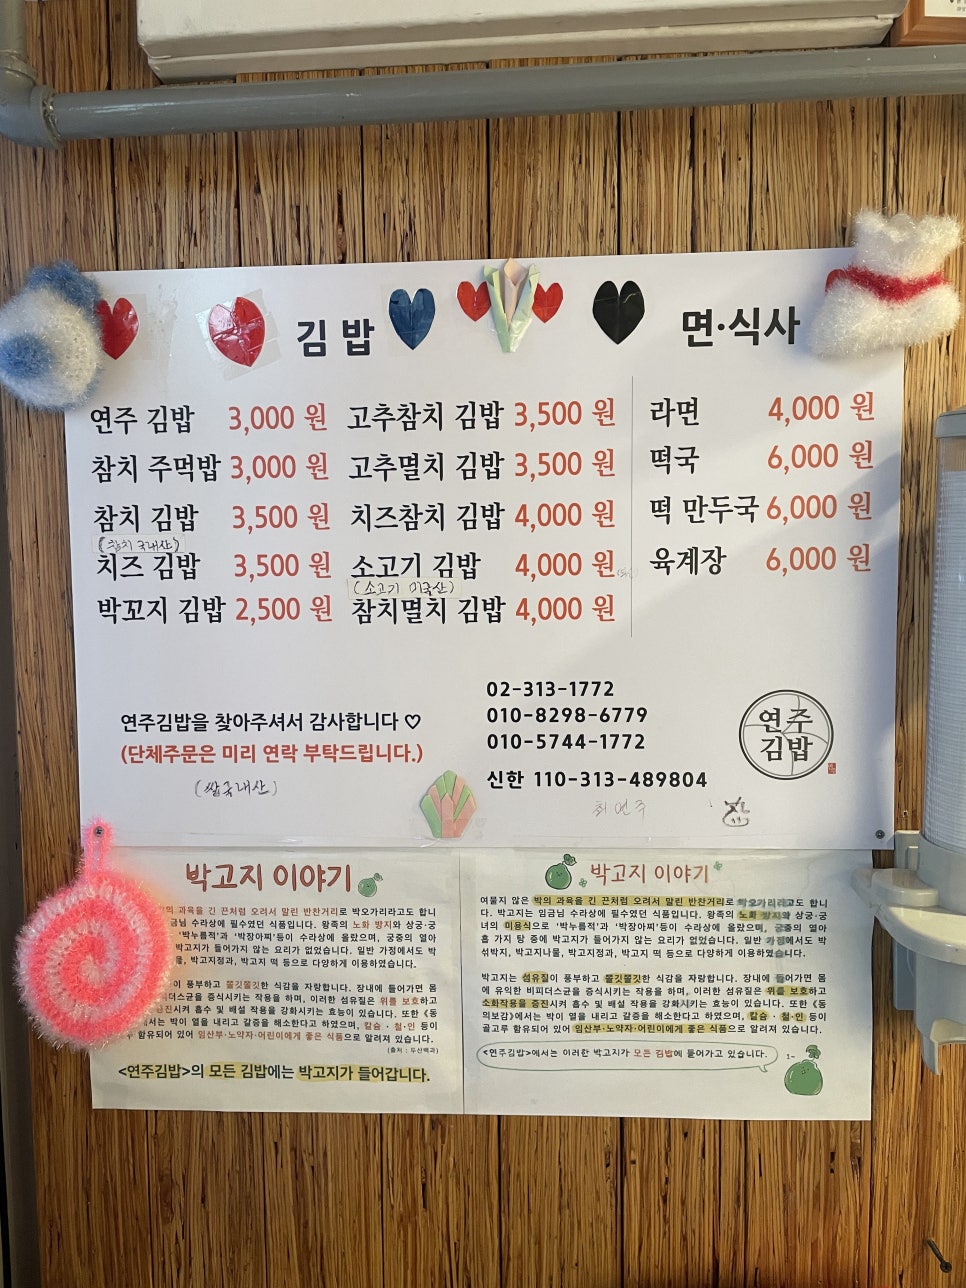 김 밥
연주 김밥 3,000 원
참치 주먹밥 3,000 원
참치 김밥 3,500 원
(참치 국내산)
치즈 김밥 3,500 원
박꼬지 김밥 2,500 원
고추참치 김밥 3,500 원
고추멸치 김밥 3,500 원
치즈참치 김밥 4,000 원
소고기 김밥 4,000 원
(소고기 미국산)
참치멸치 김밥 4,000 원
면·식사
라면 4,000 원
떡국 6,000 원
떡 만두국 6,000 원
육계장 6,000 원
연주김밥을 찾아주셔서 감사합니다 ♡
(단체주문은 미리 연락 부탁드립니다.)
(쌀국내산)
02-313-1772
010-8298-6779
010-5744-1772
신한 110-313-489804
최연주
연주
김밥
박고지 이야기
의 과육을 긴 끈처럼 오려서 말린 반찬거리로 박오가리라고도 합니
임금님 수라상에 필수였던 식품입니다. 왕족의 노화 방지와 상궁·궁
'박누름적'과 '박장아찌'등이 수라상에 올랐으며, 궁중의 열아
박고지가 들어가지 않는 요리가 없었습니다. 일반 가정에서도 박
물, 박고지정과, 박고지 떡 등으로 다양하게 이용하였습니다.
이 풍부하고 쫄깃쫄깃한 식감을 자랑합니다. 장내에 들어가면 몸
비피더스균을 증식시키는 작용을 하며, 이러한 섬유질은 위를 보호하고
증진시켜 흡수 및 배설 작용을 강화시키는 효능이 있습니다. 또한 《동
에서는 박이 열을 내리고 갈증을 해소한다고 하였으며, 칼슘·철·인 등이
루 함유되어 있어 임산부·노약자·어린이에게 좋은 식품으로 알려져 있습니다.
(출처 : 두산백과)
<연주김밥>의 모든 김밥에는 박고지가 들어갑니다.
박고지 이야기
여물지 않은 박의 과육을 긴 끈처럼 오려서 말린 반찬거리로 박오가리라고도 합니
다. 박고지는 임금님 수라상에 필수였던 식품입니다. 왕족의 노화 방지와 상궁·궁
녀의 미용식으로 '박누름적'과 '박장아찌'등이 수라상에 올랐으며, 궁중의 열아
홉 가지 탕 중에 박고지가 들어가지 않는 요리가 없었습니다. 일반 가정에서도 박
섞박지, 박고지나물, 박고지정과, 박고지 떡 등으로 다양하게 이용하였습니다.
박고지는 섬유질이 풍부하고 쫄깃쫄깃한 식감을 자랑합니다. 장내에 들어가면 몸
에 유익한 비피더스균을 증식시키는 작용을 하며, 이러한 섬유질은 위를 보호하고
소화작용을 증진시켜 흡수 및 배설 작용을 강화시키는 효능이 있습니다. 또한 《동
의보감》에서는 박이 열을 내리고 갈증을 해소한다고 하였으며, 칼슘·철·인 등이
골고루 함유되어 있어 임산부·노약자·어린이에게 좋은 식품으로 알려져 있습니다.
<연주김밥>에서는 이러한 박고지가 모든 김밥에 들어가고 있습니다.